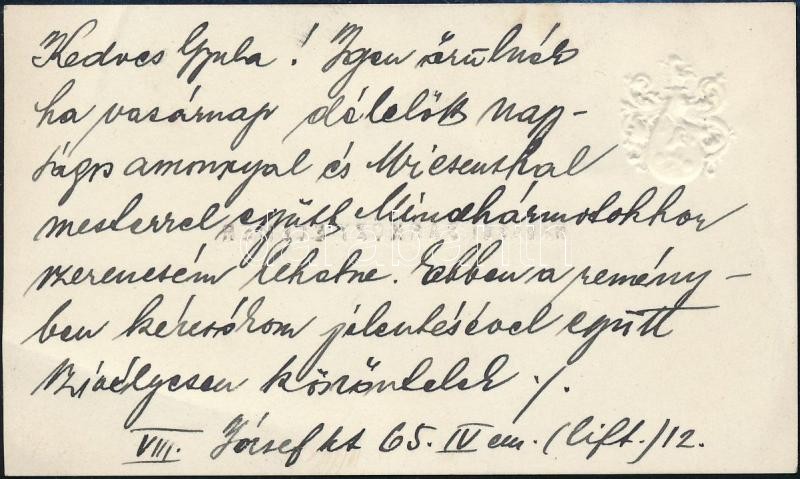 Kedves Gyula! Igen örülnék
ha vasárnap délelőtt nap-
amonnyal és
mesterrel együtt Mindhármotokhoz
szerencsém lehetne. Ebben a remény-
ben jelentésével együtt
szívélyesen köszöntelek ./.
VIII. József krt 65. IV em. (lift.) 12.